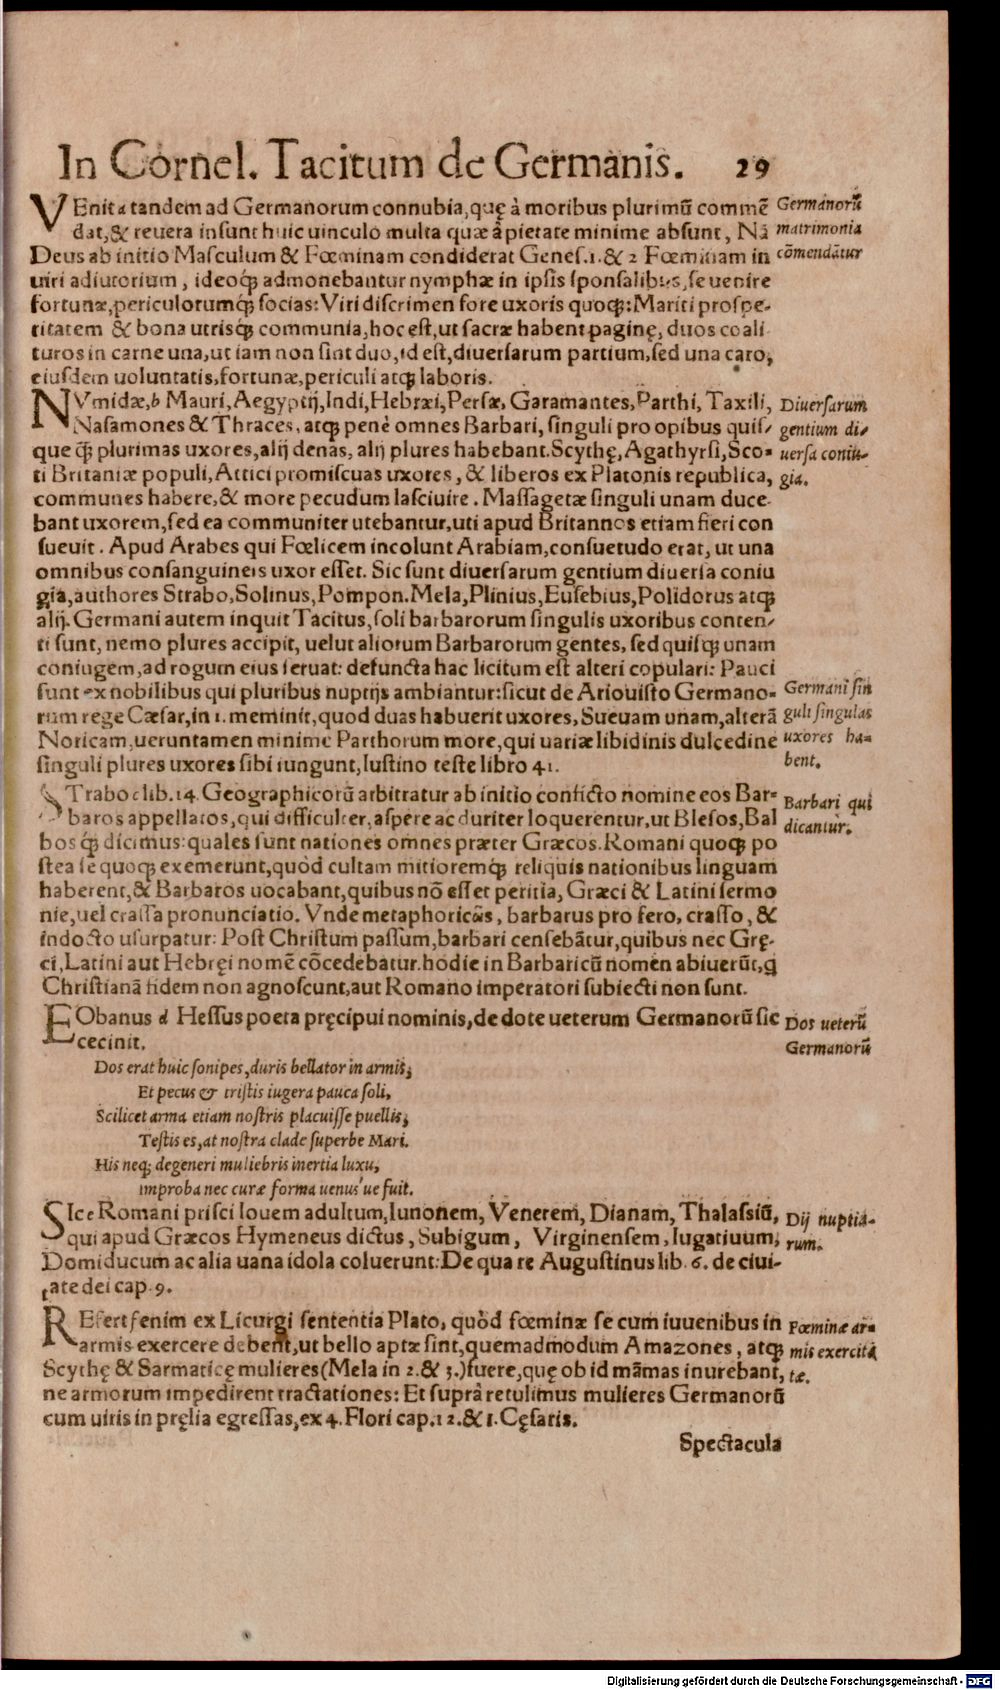 In Cornel. Tacitum de Germanis. 29
VEnit a tandem ad Germanorum connubia, quę à moribus plurimũ commẽ
dat, & reuera insunt huic uinculo multa quæ â pietate minime absunt, Nã
Deus ab initio Masculum & Fœminam condiderat Genes.1. & 2 Fœminam in
uiri adiutorium, ideoq́ admonebantur nymphæ in ipsis sponsalibus, se uenire
fortunæ, periculorumq́ socias: Viri discrimen fore uxoris quoq́: Mariti prospe-
ritatem & bona utrisq́ communia, hoc est, ut sacræ habent paginę, duos coali
turos in carne una, ut iam non sint duo, id est, diuersarum partium, sed una caro,
eiusdem uoluntatis, fortunæ, periculi atq́ laboris.
Germanorũ
matrimonia
cõmendãtur
NVmidæ, b Mauri, Aegyptij, Indi, Hebræi, Persæ, Garamantes, Parthi, Taxili,
Nasamones & Thraces, atq́ penè omnes Barbari, singuli pro opibus quis-
que q̃ plurimas uxores, alij denas, alij plures habebant. Scythę, Agathyrsi, Sco-
ti Britaniæ populi, Attici promiscuas uxores, & liberos ex Platonis republica,
communes habere, & more pecudum lasciuire. Massagetæ singuli unam duce-
bant uxorem, sed ea communiter utebantur, uti apud Britannos etiam fieri con
sueuit. Apud Arabes qui Fœlicem incolunt Arabiam, consuetudo erat, ut una
omnibus consanguineis uxor esset. Sic sunt diuersarum gentium diuersa coniu
gia, authores Strabo, Solinus, Pompon. Mela, Plinius, Eusebius, Polidorus atq́
alij. Germani autem inquit Tacitus, soli barbarorum singulis uxoribus conten-
ti sunt, nemo plures accipit, uelut aliorum Barbarorum gentes, sed quisq́ unam
coniugem, ad rogum eius seruat: defuncta hac licitum est alteri copulari: Pauci
sunt ex nobilibus qui pluribus nuptijs ambiantur: sicut de Ariouisto Germano-
rum rege Cæsar, in 1. meminit, quod duas habuerit uxores, Sueuam unam, alterã
Noricam, ueruntamen minime Parthorum more, qui uariæ libidinis dulcedine
singuli plures uxores sibi iungunt, Iustino teste libro 41.
Diuersarum
gentium di-
uersa coniu-
gia.
Germani sin
guli singulas
uxores ha-
bent.
STrabo c lib.14. Geographicorũ arbitratur ab initio conficto nomine eos Bar-
baros appellatos, qui difficulter, aspere ac duriter loquerentur, ut Blesos, Bal
bos q́ dicimus: quales sunt nationes omnes præter Græcos. Romani quoq́ po
stea se quoq́ exemerunt, quòd cultam mitioremq́ reliquis nationibus linguam
haberent, & Barbaros uocabant, quibus nõ esset peritia, Græci & Latini sermo
nie, uel crassa pronunciatio. Vnde metaphoricω̃s, barbarus pro fero, crasso, &
indocto usurpatur: Post Christum passum, barbari censebãtur, quibus nec Grę-
ci, Latini aut Hebręi nomẽ cõcedebatur. hodie in Barbaricũ nomen abiuerũt, q
Christianã fidem non agnoscunt, aut Romano imperatori subiecti non sunt.
Barbari qui
dicantur.
EObanus d Hessus poeta pręcipui nominis, de dote ueterum Germanorũ sic
cecinit.
Dos ueterũ
Germanorũ
Dos erat huic sonipes, duris bellator in armis,
Et pecus & tristis iugera pauca soli,
Scilicet arma etiam nostris placuisse puellis,
Testis es, at nostra clade superbe Mari.
His neq; degeneri muliebris inertia luxu,
improba nec curæ forma uenus'ue fuit.
SIc e Romani prisci Iouem adultum, Iunonem, Venerem, Dianam, Thalassiũ,
qui apud Græcos Hymeneus dictus, Subigum, Virginensem, Iugatiuum,
Domiducum ac alia uana idola coluerunt: De qua re Augustinus lib. 6. de ciui-
tate dei cap. 9.
Dij nuptia-
rum.
REfert f enim ex Licurgi sententia Plato, quòd fœminæ se cum iuuenibus in
armis exercere debent, ut bello aptæ sint, quemadmodum Amazones, atq́
Scythę & Sarmaticę mulieres (Mela in 2. & 3.) fuere, quę ob id mãmas inurebant,
ne armorum impedirent tractationes: Et suprà retulimus mulieres Germanorũ
cum uiris in pręlia egressas, ex 4. Flori cap. 12. & 1. Cęsaris.
Fœminæ ar-
mis exercita
tæ.
Spectacula
Digitalisierung gefördert durch die Deutsche Forschungsgemeinschaft - DFG